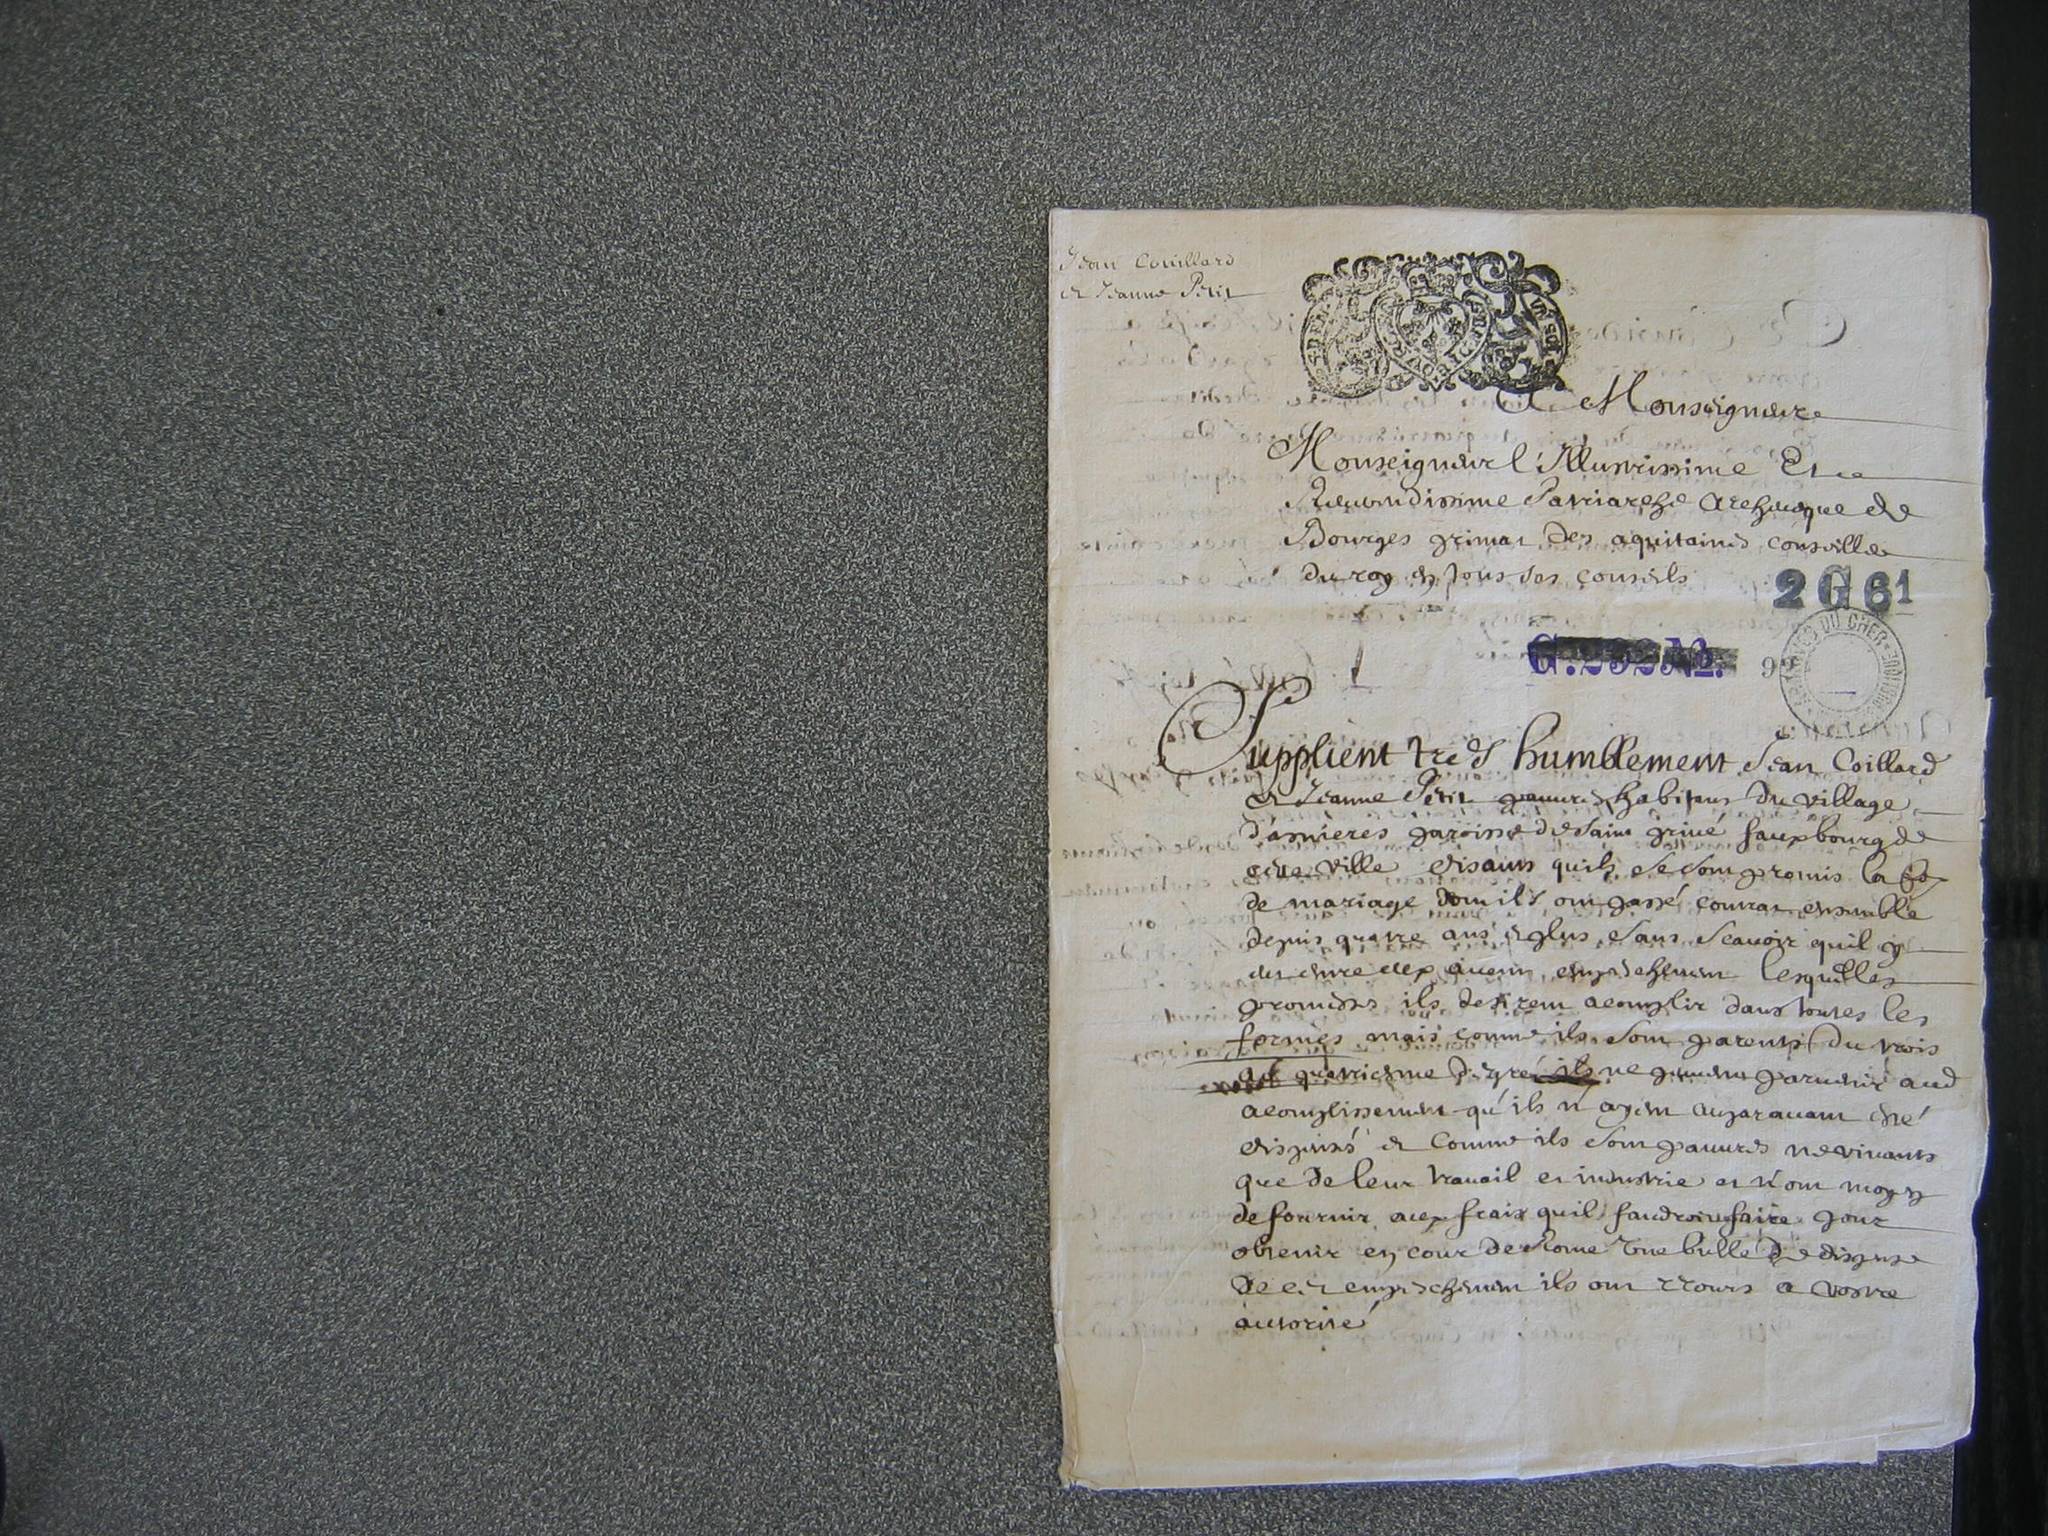 Jean Couillard
et Jeanne Petit
A Monseigneur
Monseigneur l'Illustrissime Et
Reverendissime Patriarche Archeveque de
Bourges primat des aquitaines conseiller
du roy en tous ses conseils
2 G 61
G. 292 No.
ARCHIVES DU CHER
Supplient tres humblement Jean Coillard
et Jeanne Petit pauvres habitans du village
d'asnieres paroisse de Saint privé fauxbourg de
cette ville disants quils se sont promis la foy
de mariage dont ils ont passé contrat ensemble
depuis quatre ans et plus sans scavoir quil y
eut entre eux aucun empechement lesquelles
promesses ils desirent acomplir dans toutes les
formes mais comme ils sont parents du trois
au quatriesme degré ils ne peuvent parvenir aud
acomplissement qu'ils n'ayent auparavant eté
dispensés et comme ils sont pauvres ne vivants
que de leur travail et industrie et n'ont moyen
de fournir aux fraix quil faudroit faire pour
obtenir en cour de Rome une bulle de dispense
de cet empeschement ils ont recours a vostre
autorité